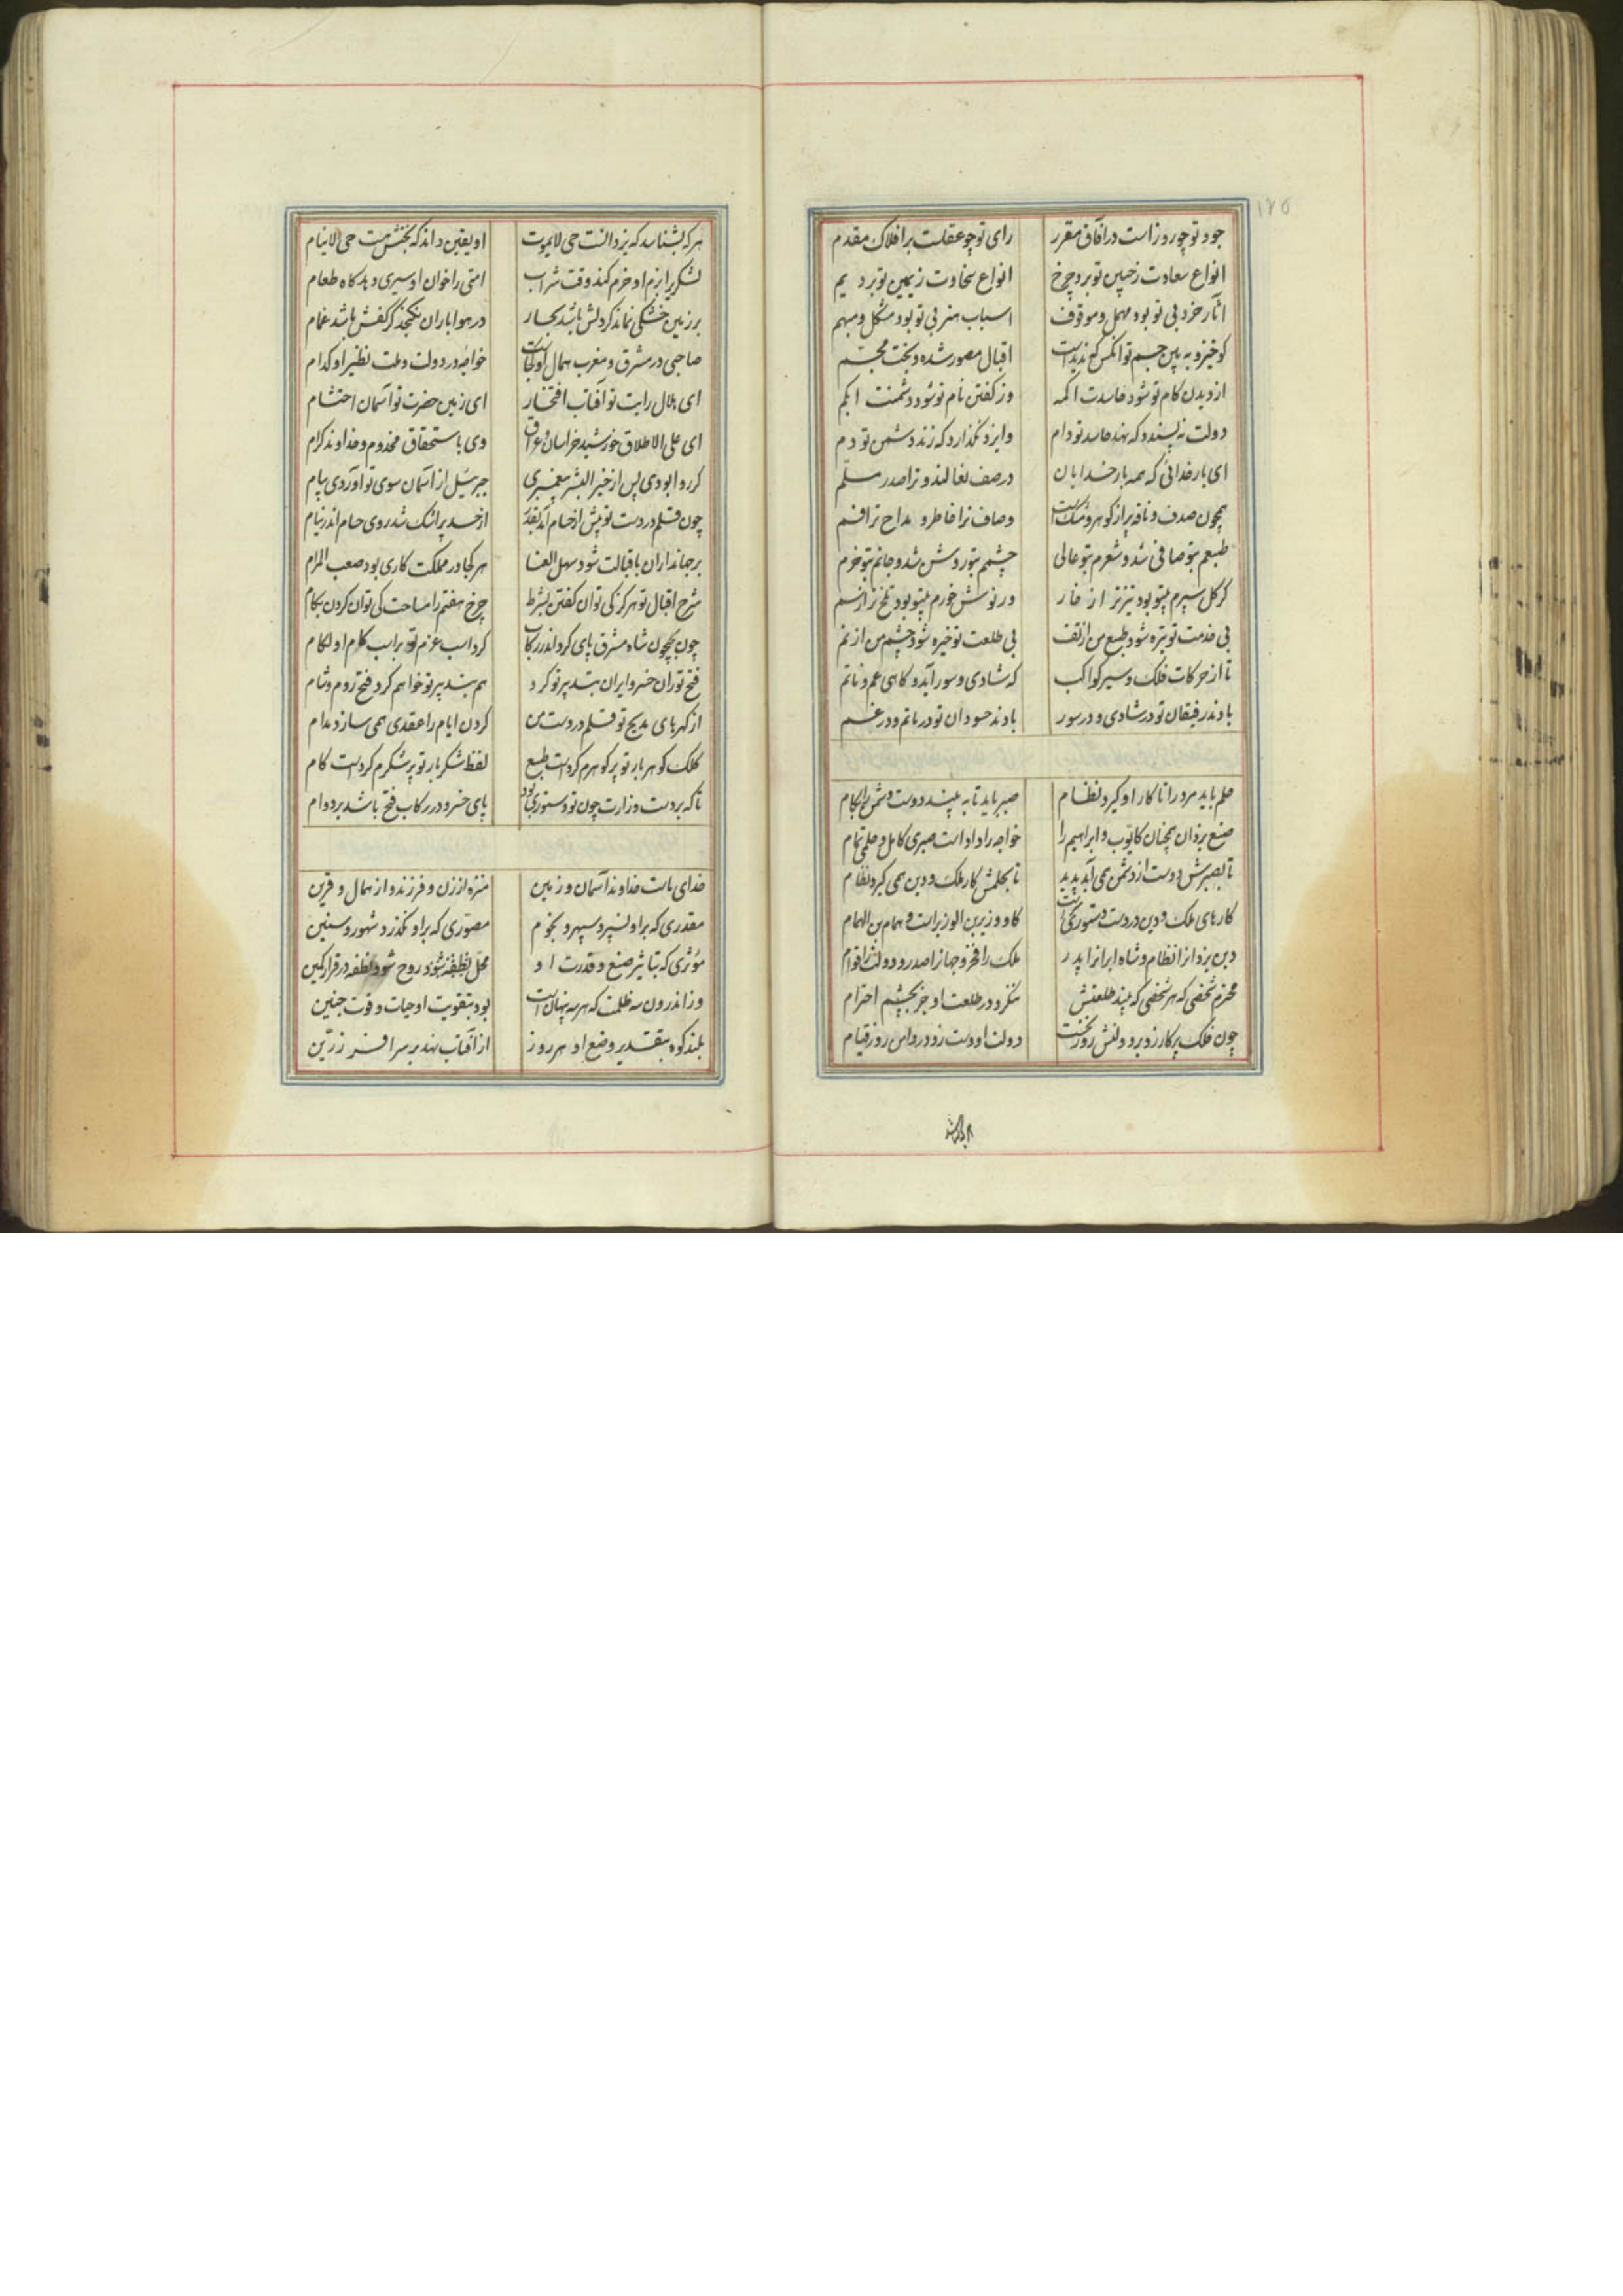 ۱۷۵
جود تو چو روز است در آفاق مقرر رای تو چو عقلست بر افلاک مقدم
انواع سعادت ز جبین تو برد چرخ انواع سخاوت ز یمین تو برد یم
آثار خرد بی تو بود مهمل و موقوف اسباب هنر بی تو بود مشکل و مبهم
کو خیز و به بین جسم تو آنکس که ندیدست اقبال مصور شده و بخت مجسم
از دیدن کام تو شود حاسدت اکمه وز گفتن نام تو شود دشمنت ابکم
دولت نه پسندد که نهد حاسد تو دام وایزد نگذارد که زند دشمن تو دم
ای بار خدائی که همه بار خدایان در صف نعالند و ترا صدر مسلم
همچون صدف و نافه پر از گوهر و مشکست وصاف ترا خاطر و مداح ترا فم
طبعم بتو صافی شد و شعرم بتو عالی چشمم بتو روشن شد و جانم بتو خرم
گر گل سپرم بیتو بود تیزتر از خار ور نوش خورم بیتو بود تلخ تر از سم
بی خدمت تو تیره شود طبع من از تف بی طلعت تو خیره شود چشم من از نم
تا از حرکات فلک و سیر کواکب که شادی و سور آید و کاهی غم و ماتم
بادند رفیقان تو در شادی و در سور بادند حسودان تو در ماتم و در غم
حلم باید مرد را تا کار او گیرد نظام صبر باید تا به بیند دوست دشمن را بکام
صنع یزدان همچنان کایوب و ابراهیم را خواجه را دادست صبری کامل و حلمی تمام
تا بصبرش دوست از دشمن همی آید پدید تا بحلمش کار ملک و دین همی گیرد نظام
کارهای ملک و دین در دست دستوریست کاو وزیر بن الوزیر است و همام بن الهمام
دین یزدانرا نظام و شاه ایرانرا پدر ملک را فخر و جهانرا صدر و دولت را قوام
محترم شخصی که هر شخصی که بیند طلعتش ننگرد در طلعت او جز بچشم احترام
چون فلک پرکار زد بر دولتش روز نخست دولت او دست زد در دامن روز قیام
هر که بشناسد که یزدانست حی لایموت او یقین داند که بخشش هست حی لاینام
لشکری را بزم او خرم کند وقت شراب امتی را خوان او سیری دهد گاه طعام
بر زمین خشکی نماند گر دلش باشد بحار در هوا باران نگنجد گر کفش باشد غمام
صاحبی در مشرق و مغرب همال او کجاست خواجه در دولت و ملت نظیر او کدام
ای هلال رایت تو آفتاب افتخار ای زمین حضرت تو آسمان احتشام
ای علی الاطلاق خورشید خراسان و عراق وی باستحقاق مخدوم و خداوند کرام
گر روا بودی پس از خیر البشر پیغمبری جبرئیل از آسمان سوی تو آوردی پیام
چون قلم در دست تو پیش از حسام آمد بقدر از حسد پر اشک شد روی حسام اندر نیام
بر جهانداران باقبالت شود سهل العنا هر کجا در مملکت کاری بود صعب المرام
شرح اقبال تو هرگز کی توان گفتن بشرط چرخ هفتم را مساحت کی توان کردن بگام
چون همچون شاه مشرق پای کرد اندر رکاب کرد اسب عزم تو بر اسب او لگام
فتح توران خسرو ایران بتدبیر تو کرد هم بتدبیر تو خواهم کرد فتح روم و شام
از گهرهای مدیح تو قلم در دست من گردن ایام را عقدی همی سازد مدام
کلک گوهر بار تو پر گوهرم کردست طبع لفظ شکر بار تو پر شکرم کردست کام
تا که بر دست وزارت چون تو دستوری بود پای خسرو در رکاب فتح باشد بر دوام
خدای ماست خداوند آسمان و زمین منزه از زن و فرزند و از همال و قرین
مقدری که بر او نسپرد سپهر و نجوم مصوری که بر او نگذرد شهور و سنین
مؤثری که بتاثیر صنع و قدرت او محل نطفه شود روح نطفه در قرار مکین
وز اندرون سه ظلمت که هر سه پنهان است بود بتقویت او حیات و قوت جنین
بلند کوه بتقدیر وضع او هر روز از آفتاب نهد بر سر افسر زرین